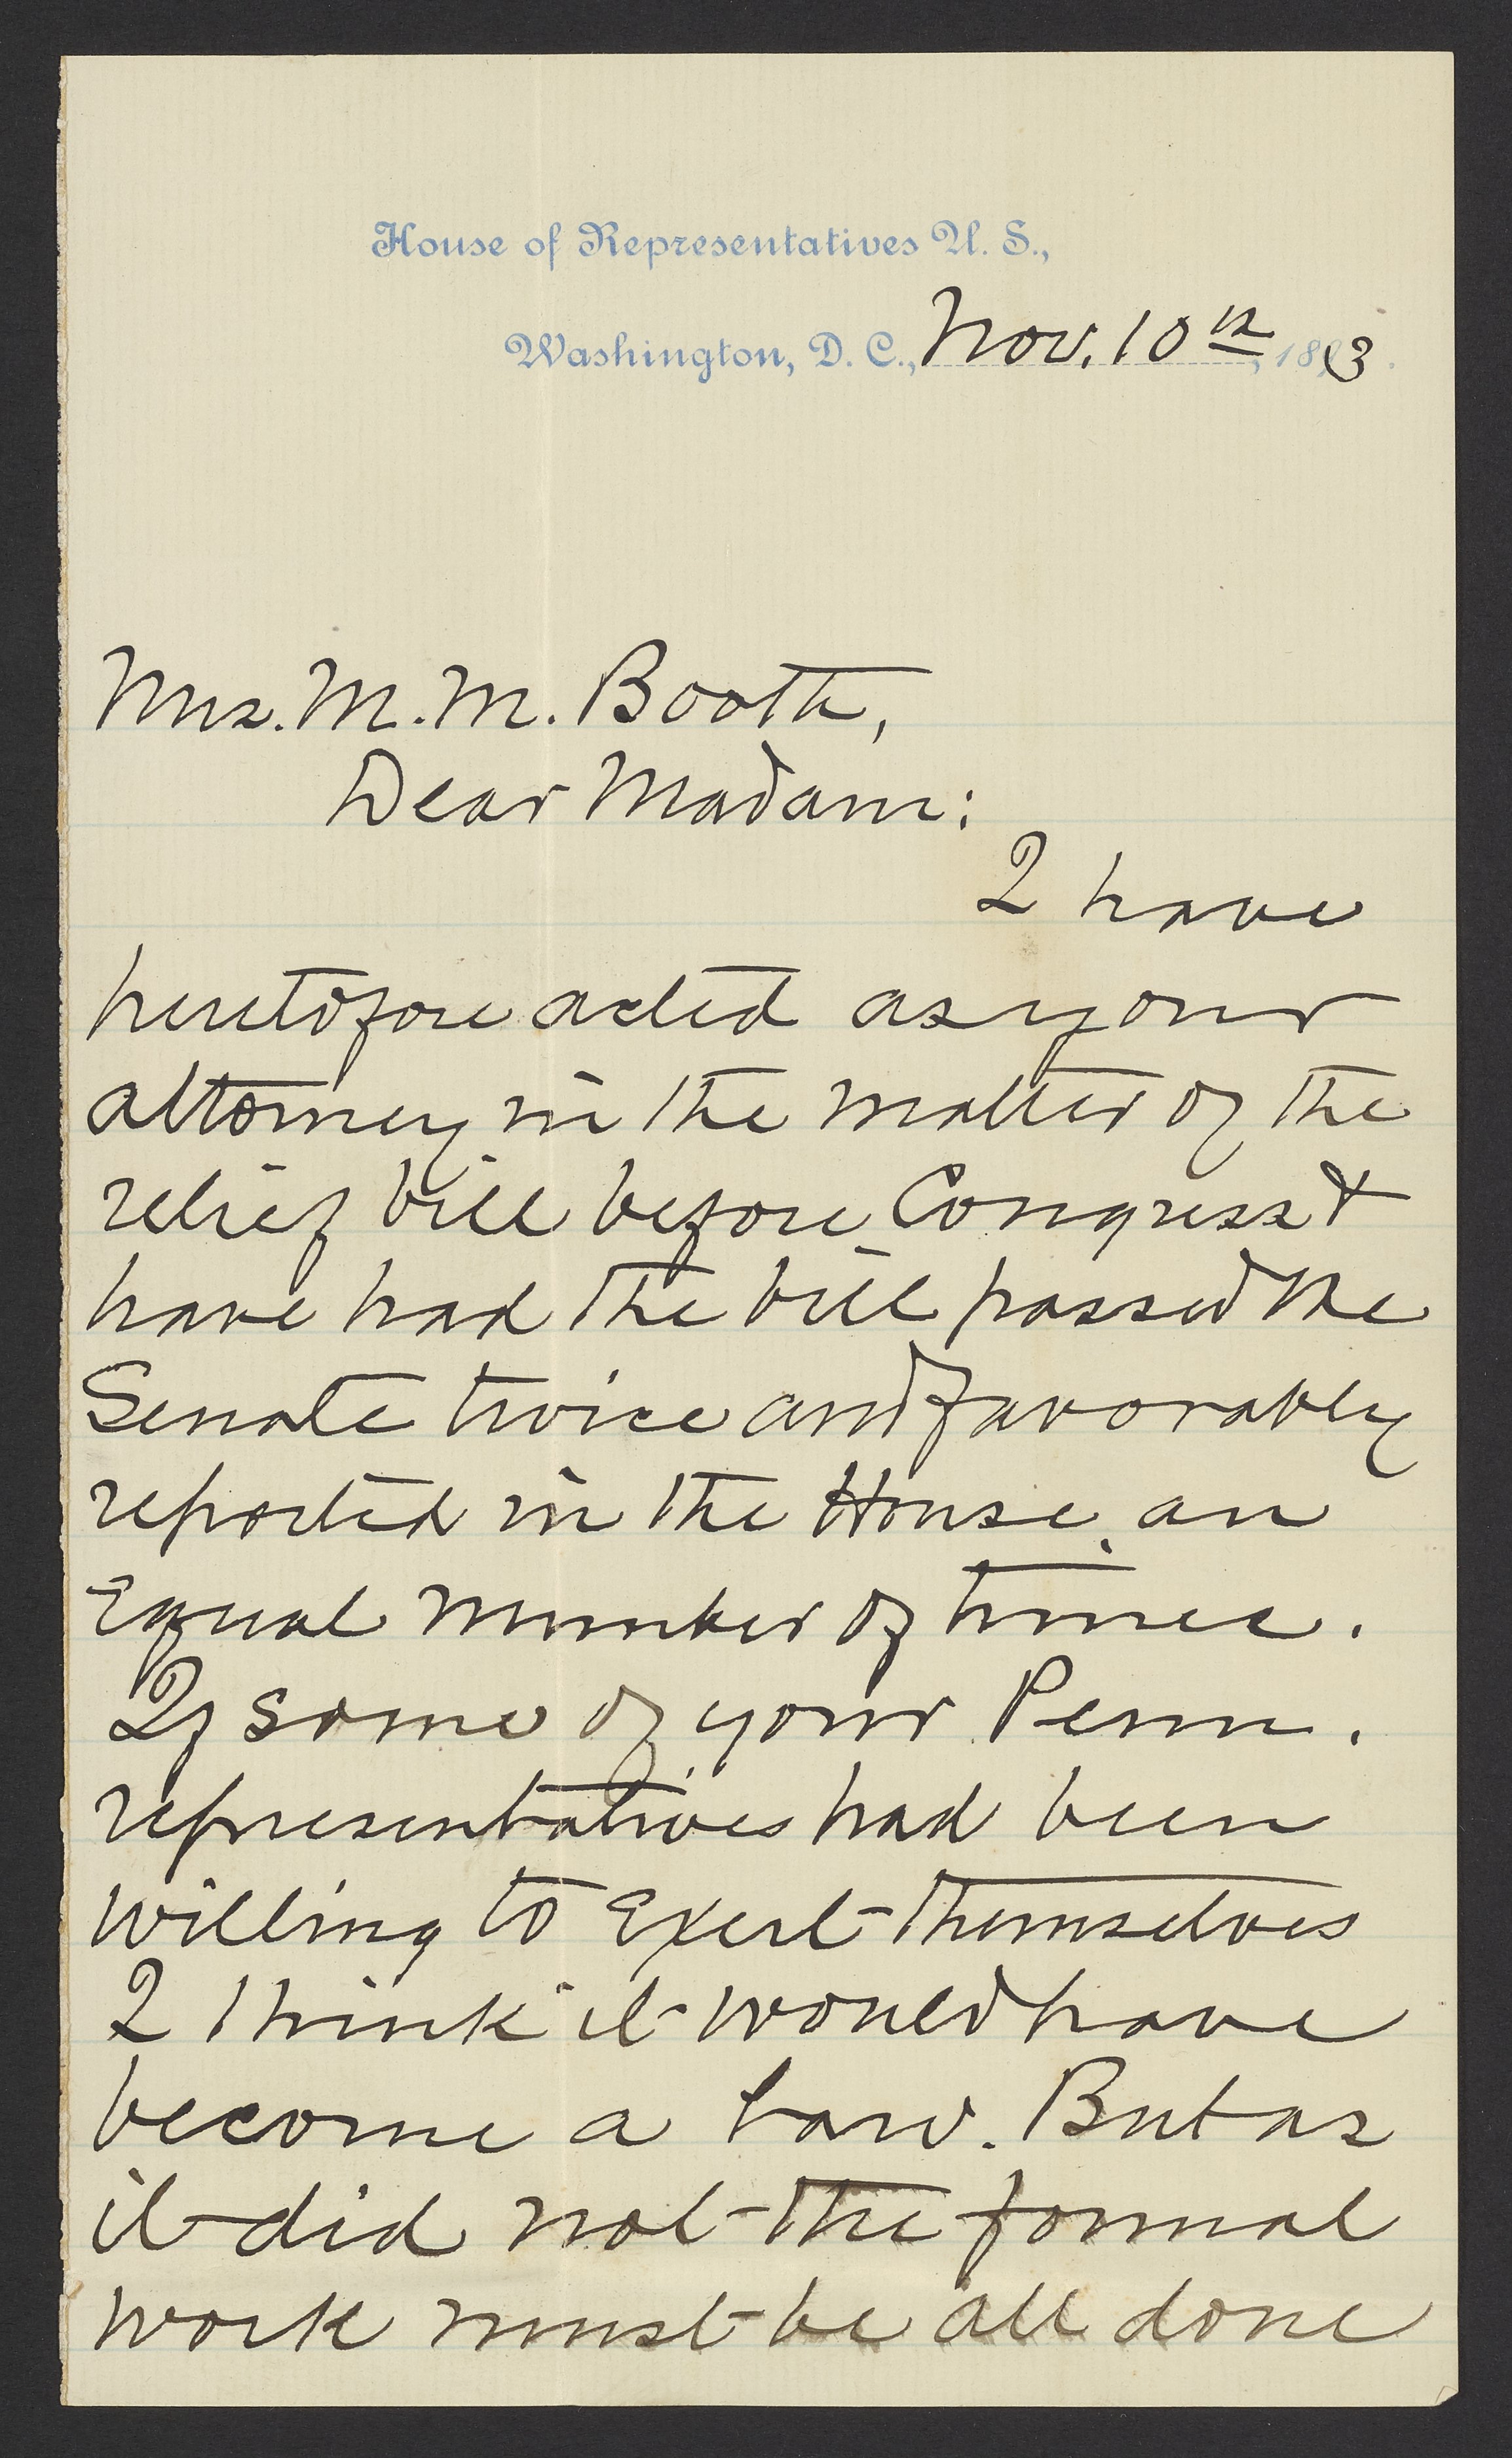 House of Representatives U. S.,
Washington, D. C., Nov. 10th, 1893.
Mrs. M. M. Booth,
Dear Madam:
I have
heretofore acted as your
attorney in the matter of the
relief bill before Congress &
have had the bill passed the
Senate twice and favorably
reported in the House, an
Equal number of times.
If some of your Penn.
representatives had been
willing to Exert themselves
I think it would have
become a law. But as
it did not the formal
work must be all done